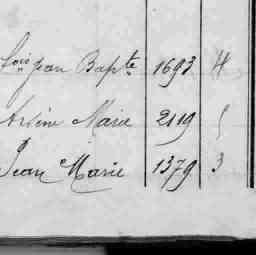 Jean Bapte 1693 4
Arsène Marie 2119 5
Jean Marie 1379 3